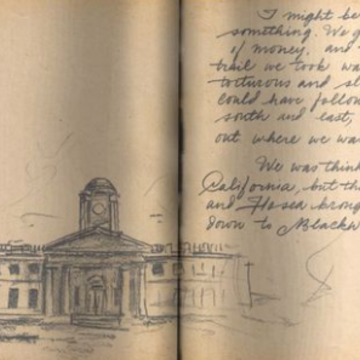 I might be
something. We g
if money, and
trail we took wa
torturous and sl
could have follow
south and east,
out where we wa
We was think
California, but th
and Hosea brong
down to Blackw